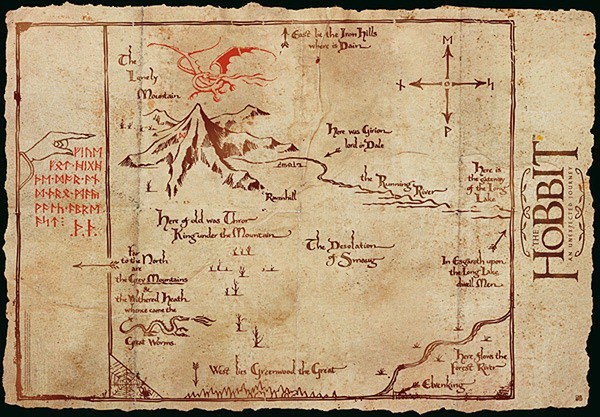 East lie the Iron Hills
where is Dain
The
Lonely
Mountain
Here was Girion
lord in Dale
the Running River
Here is
the
of the Long
Lake
Ravenhill
Here of old was Thror
King under the Mountain
The Desolation
of Smaug
Far
to the North
are
the Grey Mountains
&
the Withered Heath
whence came the
Great Worms
In Esgaroth upon
the Long Lake
dwell Men
West lies Greenwood the Great
Here flows the
Forest River
Elvenking
THE
HOBBIT
AN UNEXPECTED JOURNEY